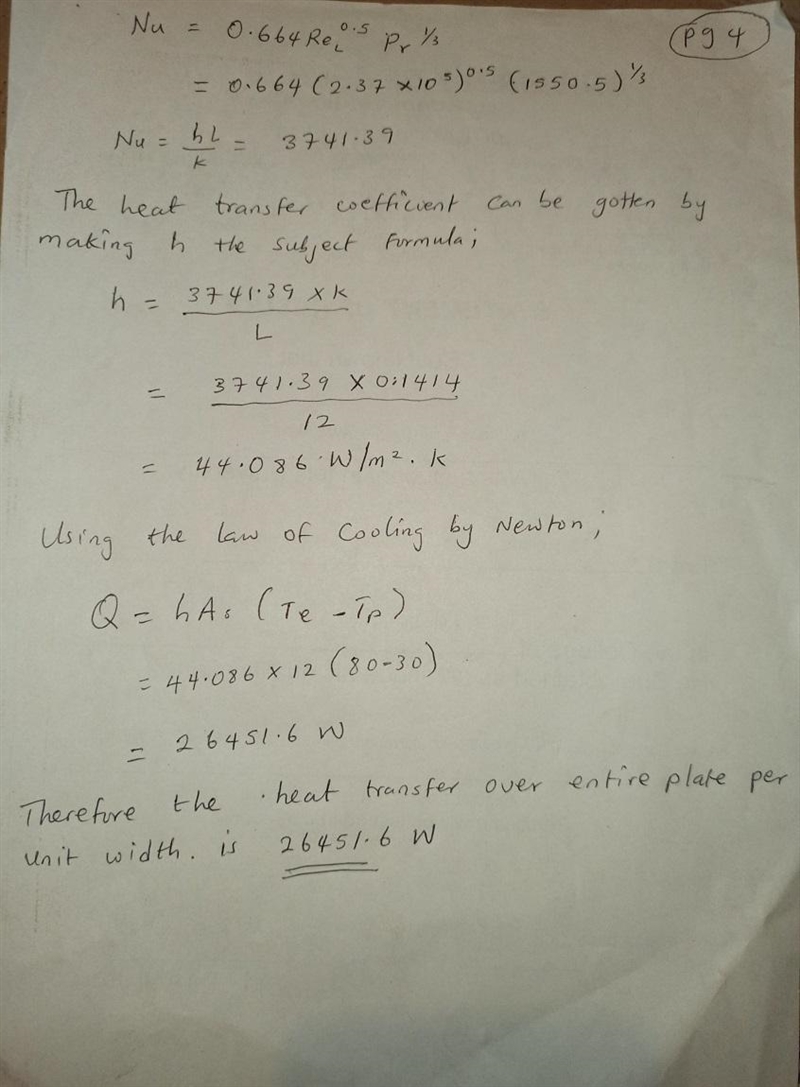 Pg 4
Nu = 0.664 Re_L^0.5 Pr^1/3
= 0.664 (2.37 × 10^5)^0.5 (1550.5)^1/3
Nu = hL/k = 3741.39
The heat transfer coefficient can be gotten by
making h the subject formula;
h = 3741.39 × k / L
= 3741.39 × 0.1414 / 12
= 44.086 W/m². k
Using the law of cooling by Newton;
Q = hAs (Te - Tp)
= 44.086 × 12 (80-30)
= 26451.6 W
Therefore the heat transfer over entire plate per
unit width. is 26451.6 W